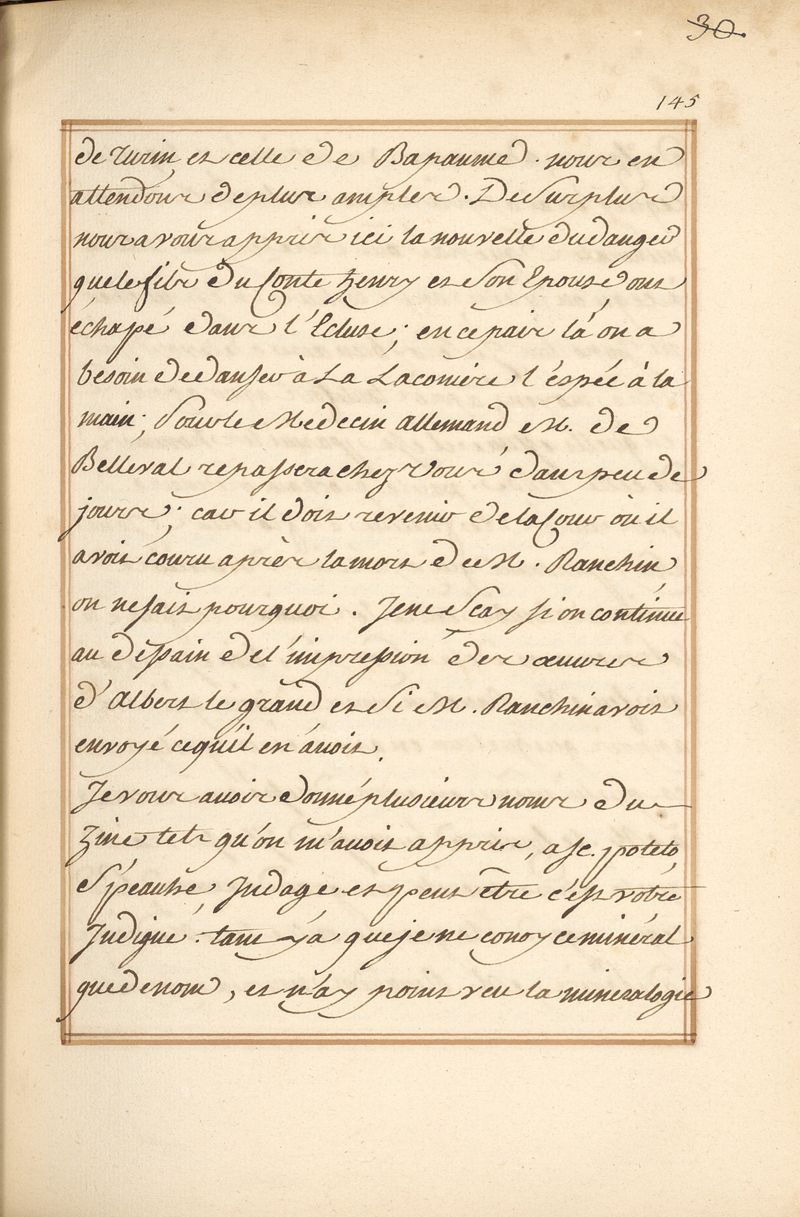 30
145
de Turin et celle de Bapaume. nous en
attendons de plus amples. De Surplus
nous avons appris ici la nouvelle du danger
que le fils du Conte henry et Son Epouse ont
échapé dans l'Ecluse; en ce païs là on a
besoin de danser à La Laconiere l'éspée à la
main; Pour le Medecin allemand M. de
Belleval repassera chez vous dans peu de
jours; car il doit revenir de la Cour où il
avoit couru après la mort de M. Ranchin
on ne sait pourquoi. Je ne Scay si on continue
au dessain de l'impression des œuvres
d'Albert le grand et Si M. Ranchin avoit
envoyé ce qu'il en avoit.
Je vous avois donné plusieurs noms du
Zine tels qu'on m'avoit appris, asc. poteto,
Speautre, Judage et peut être c'est votre
Judigue. tant y a que je ne conoy ce minéral
que de nom, et n'ay point veu la mineralogie